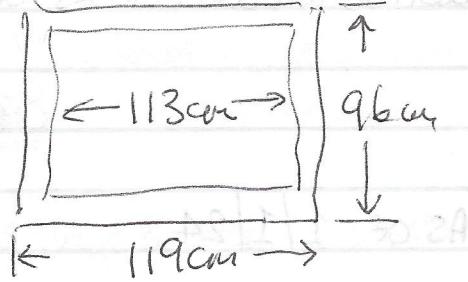 113cm
96cm
119cm